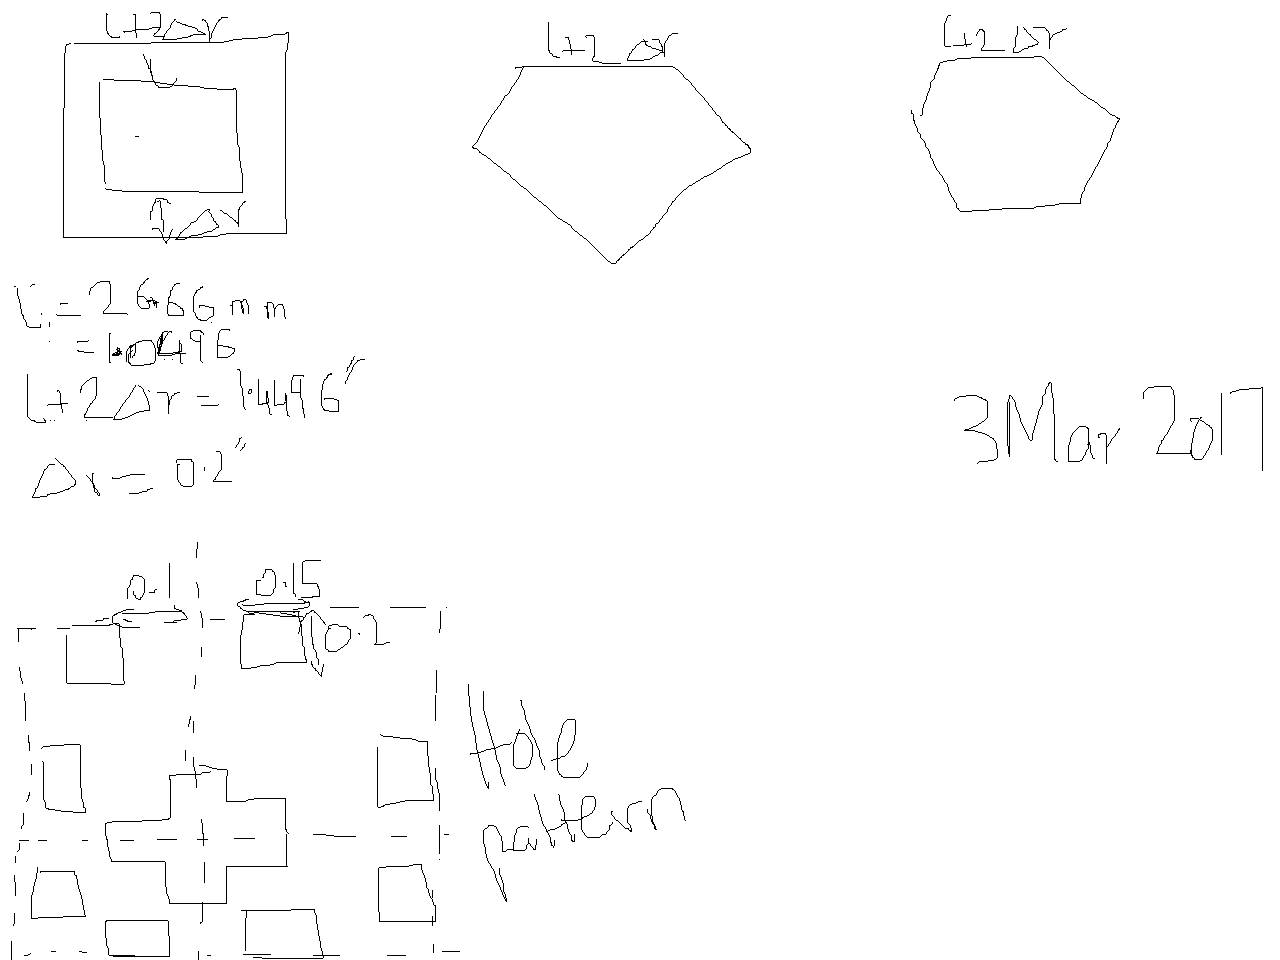 l+2Δr
l+2Δr
l+2Δr
Δr
l = 26.66 mm
= 1.0496
l+2Δr = 1.4496"
Δr = 0.2"
3 Mar 2017
0.1
0.15
0.2
Hole
pattern